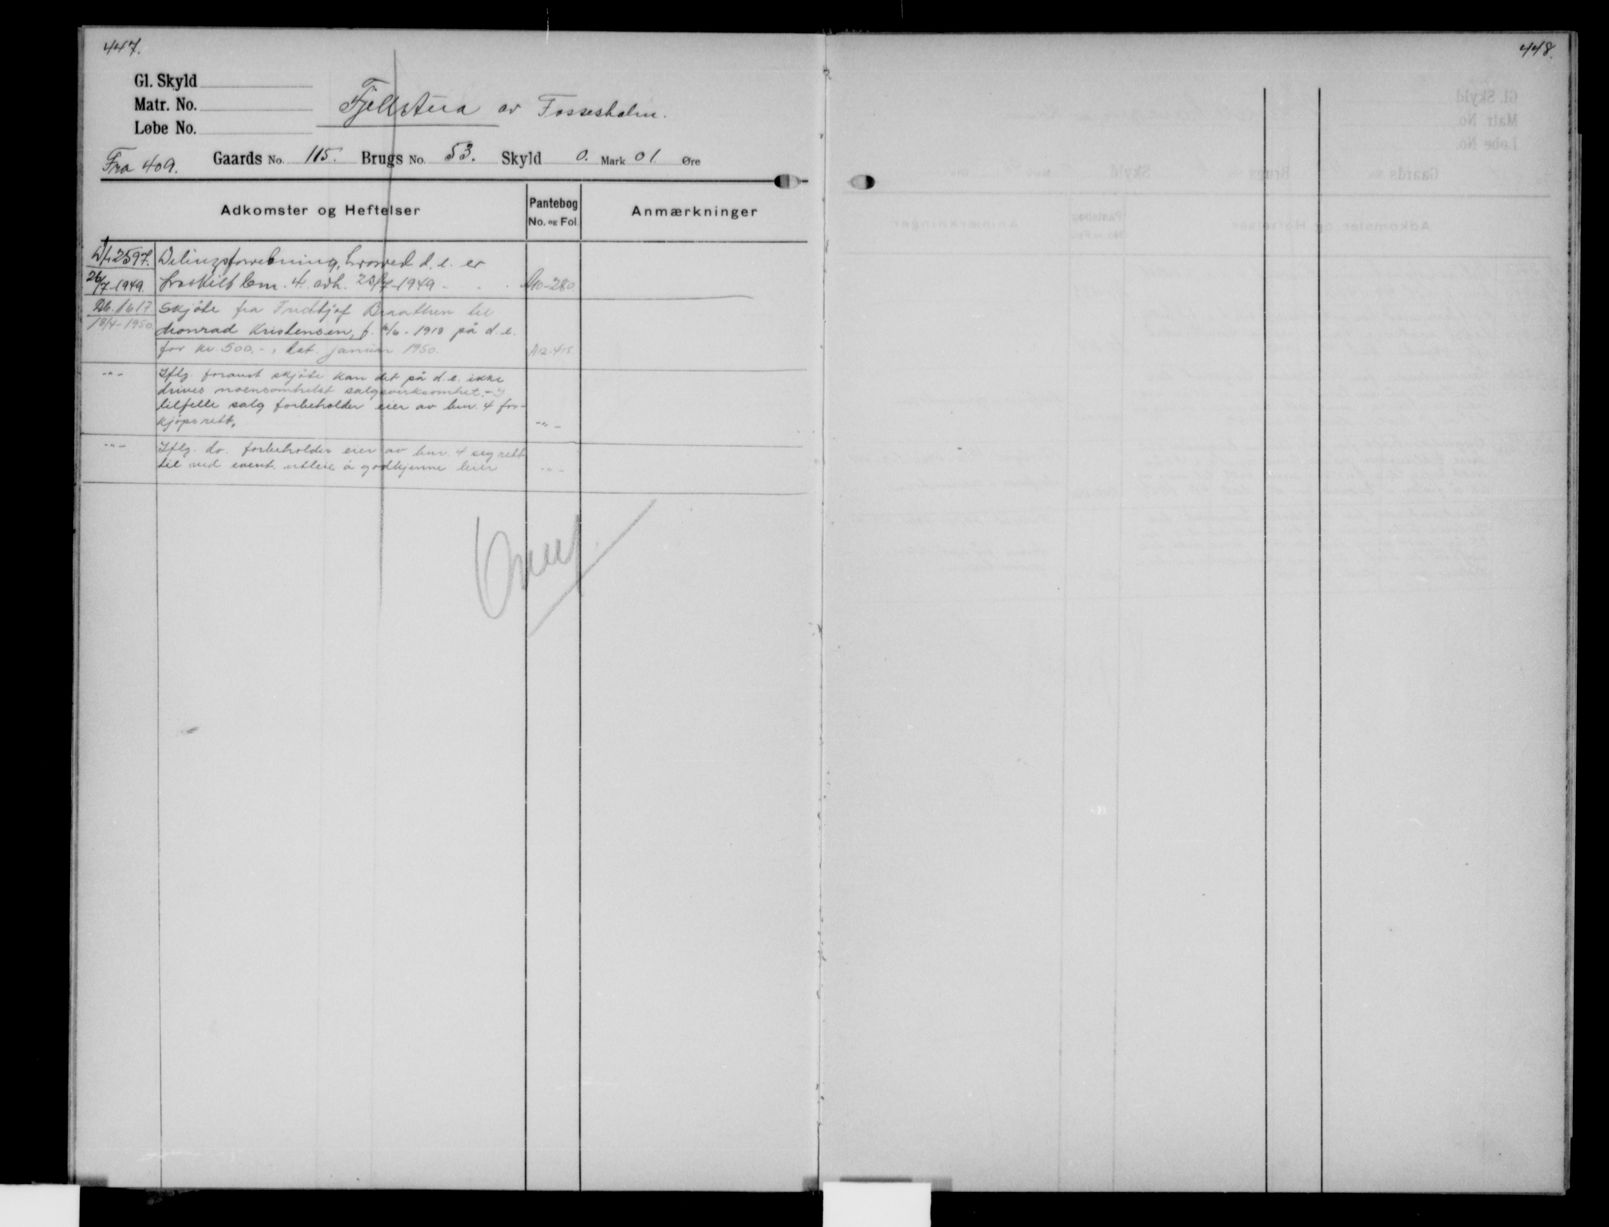 447.
Gl. Skyld
Matr. No.
Løbe No.
Fjellstua av Fossesholm.
Fra 409.
Gaards No. 115. Brugs No. 53. Skyld 0. Mark 01 Øre
Adkomster og Heftelser
Pantebog
No. og Fol.
Anmærkninger
2597. Delingsforretning, hvorved d. e. er
26/7-1949. fraskilt bnr. 4. avh. 1949 - 280
Db. 1617 Skjøte fra Braathen til
18/4-1950 Konrad Kristensen, f. 1910 på d. e.
for kr. 500.-, dat. januar 1950.
-"- Iflg. foranst skjøte kan det på d. e. ikke
drives noensomhelst salgsvirksomhet. - I
tilfelle salg forbeholder eier av bnr. 4 for-
kjøpsrett. -"-
-"- Iflg. do. forbeholder eier av bnr. 4 seg rett
til ved event. utleie å godkjenne leier -"-
448.